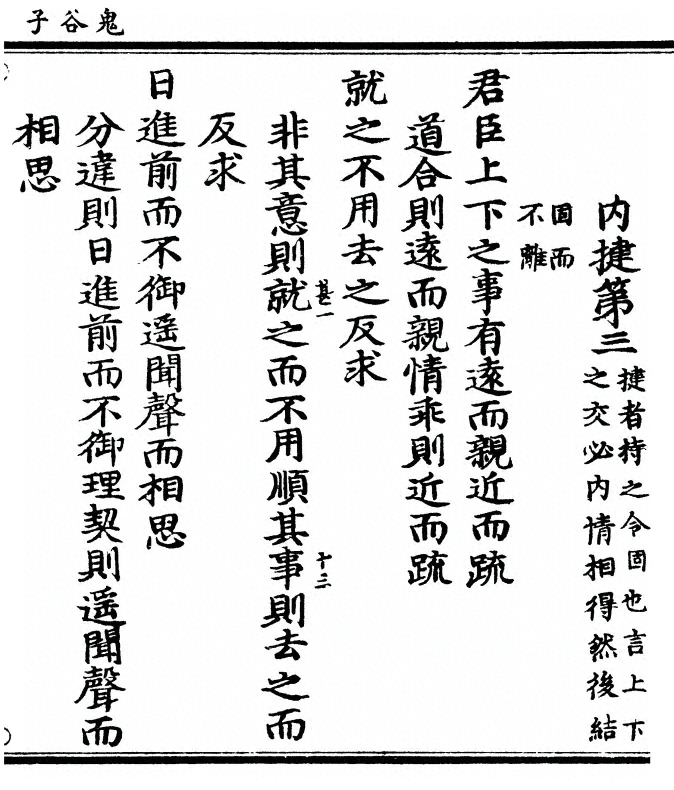 鬼谷子
内揵第三
揵者持之令固也言上下
之交必内情相得然後結
固而
不離
君臣上下之事有遠而親近而疏
道合則遠而親情乖則近而疏
就之不用去之反求
非其意則就之而不用順其事則去之而
甚一
十三
反求
日進前而不御遥聞聲而相思
分違則日進前而不御理契則遥聞聲而
相思